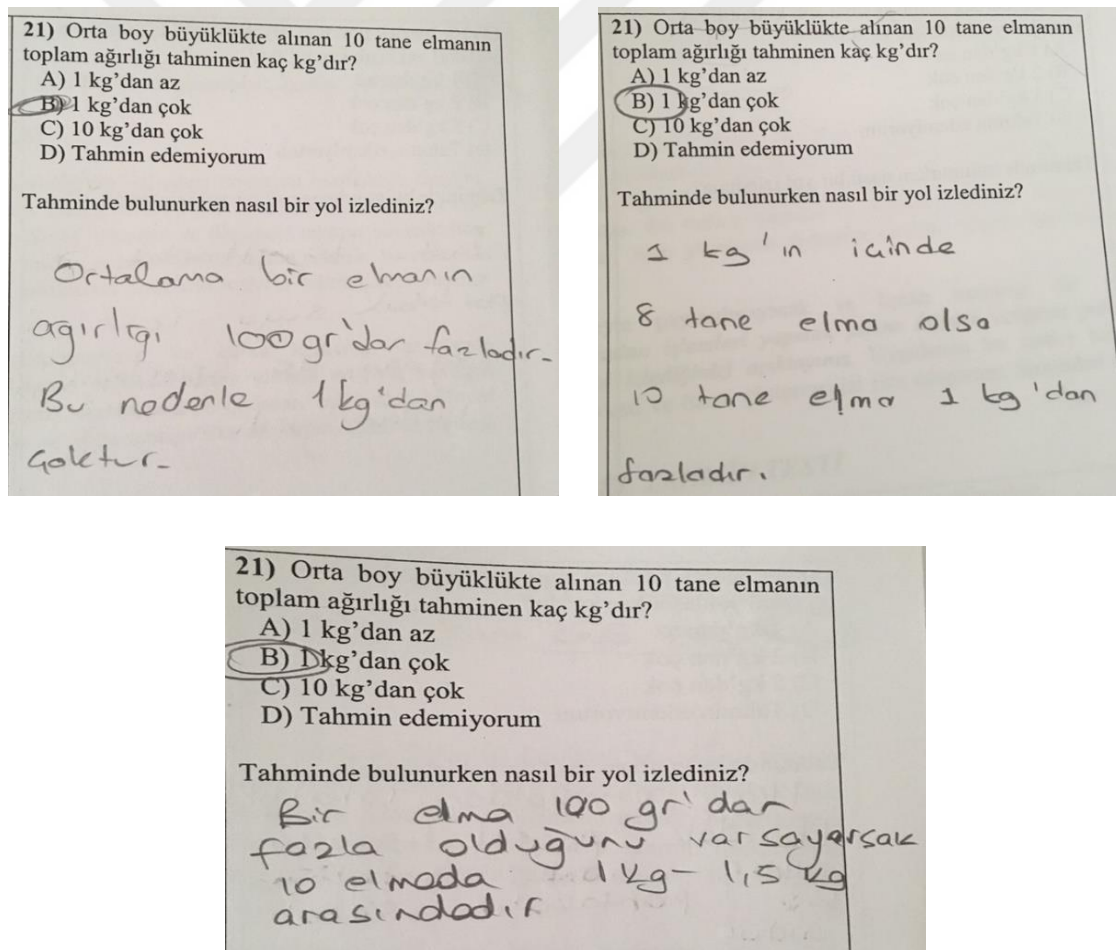 21) Orta boy büyüklükte alınan 10 tane elmanın
toplam ağırlığı tahminen kaç kg'dır?
A) 1 kg'dan az
B) 1 kg'dan çok
C) 10 kg'dan çok
D) Tahmin edemiyorum
Tahminde bulunurken nasıl bir yol izlediniz?
Ortalama bir elmanın
agırlıgı 100 gr'dan fazladır.
Bu nedenle 1 kg'dan
çoktur.
21) Orta boy büyüklükte alınan 10 tane elmanın
toplam ağırlığı tahminen kaç kg'dır?
A) 1 kg'dan az
B) 1 kg'dan çok
C) 10 kg'dan çok
D) Tahmin edemiyorum
Tahminde bulunurken nasıl bir yol izlediniz?
1 kg'ın içinde
8 tane elma olsa
10 tane elma 1 kg'dan
fazladır.
21) Orta boy büyüklükte alınan 10 tane elmanın
toplam ağırlığı tahminen kaç kg'dır?
A) 1 kg'dan az
B) 1 kg'dan çok
C) 10 kg'dan çok
D) Tahmin edemiyorum
Tahminde bulunurken nasıl bir yol izlediniz?
Bir elma 100 gr'dan
fazla olduğunu varsayarsak
10 elmada 1 kg - 1,5 kg
arasındadır